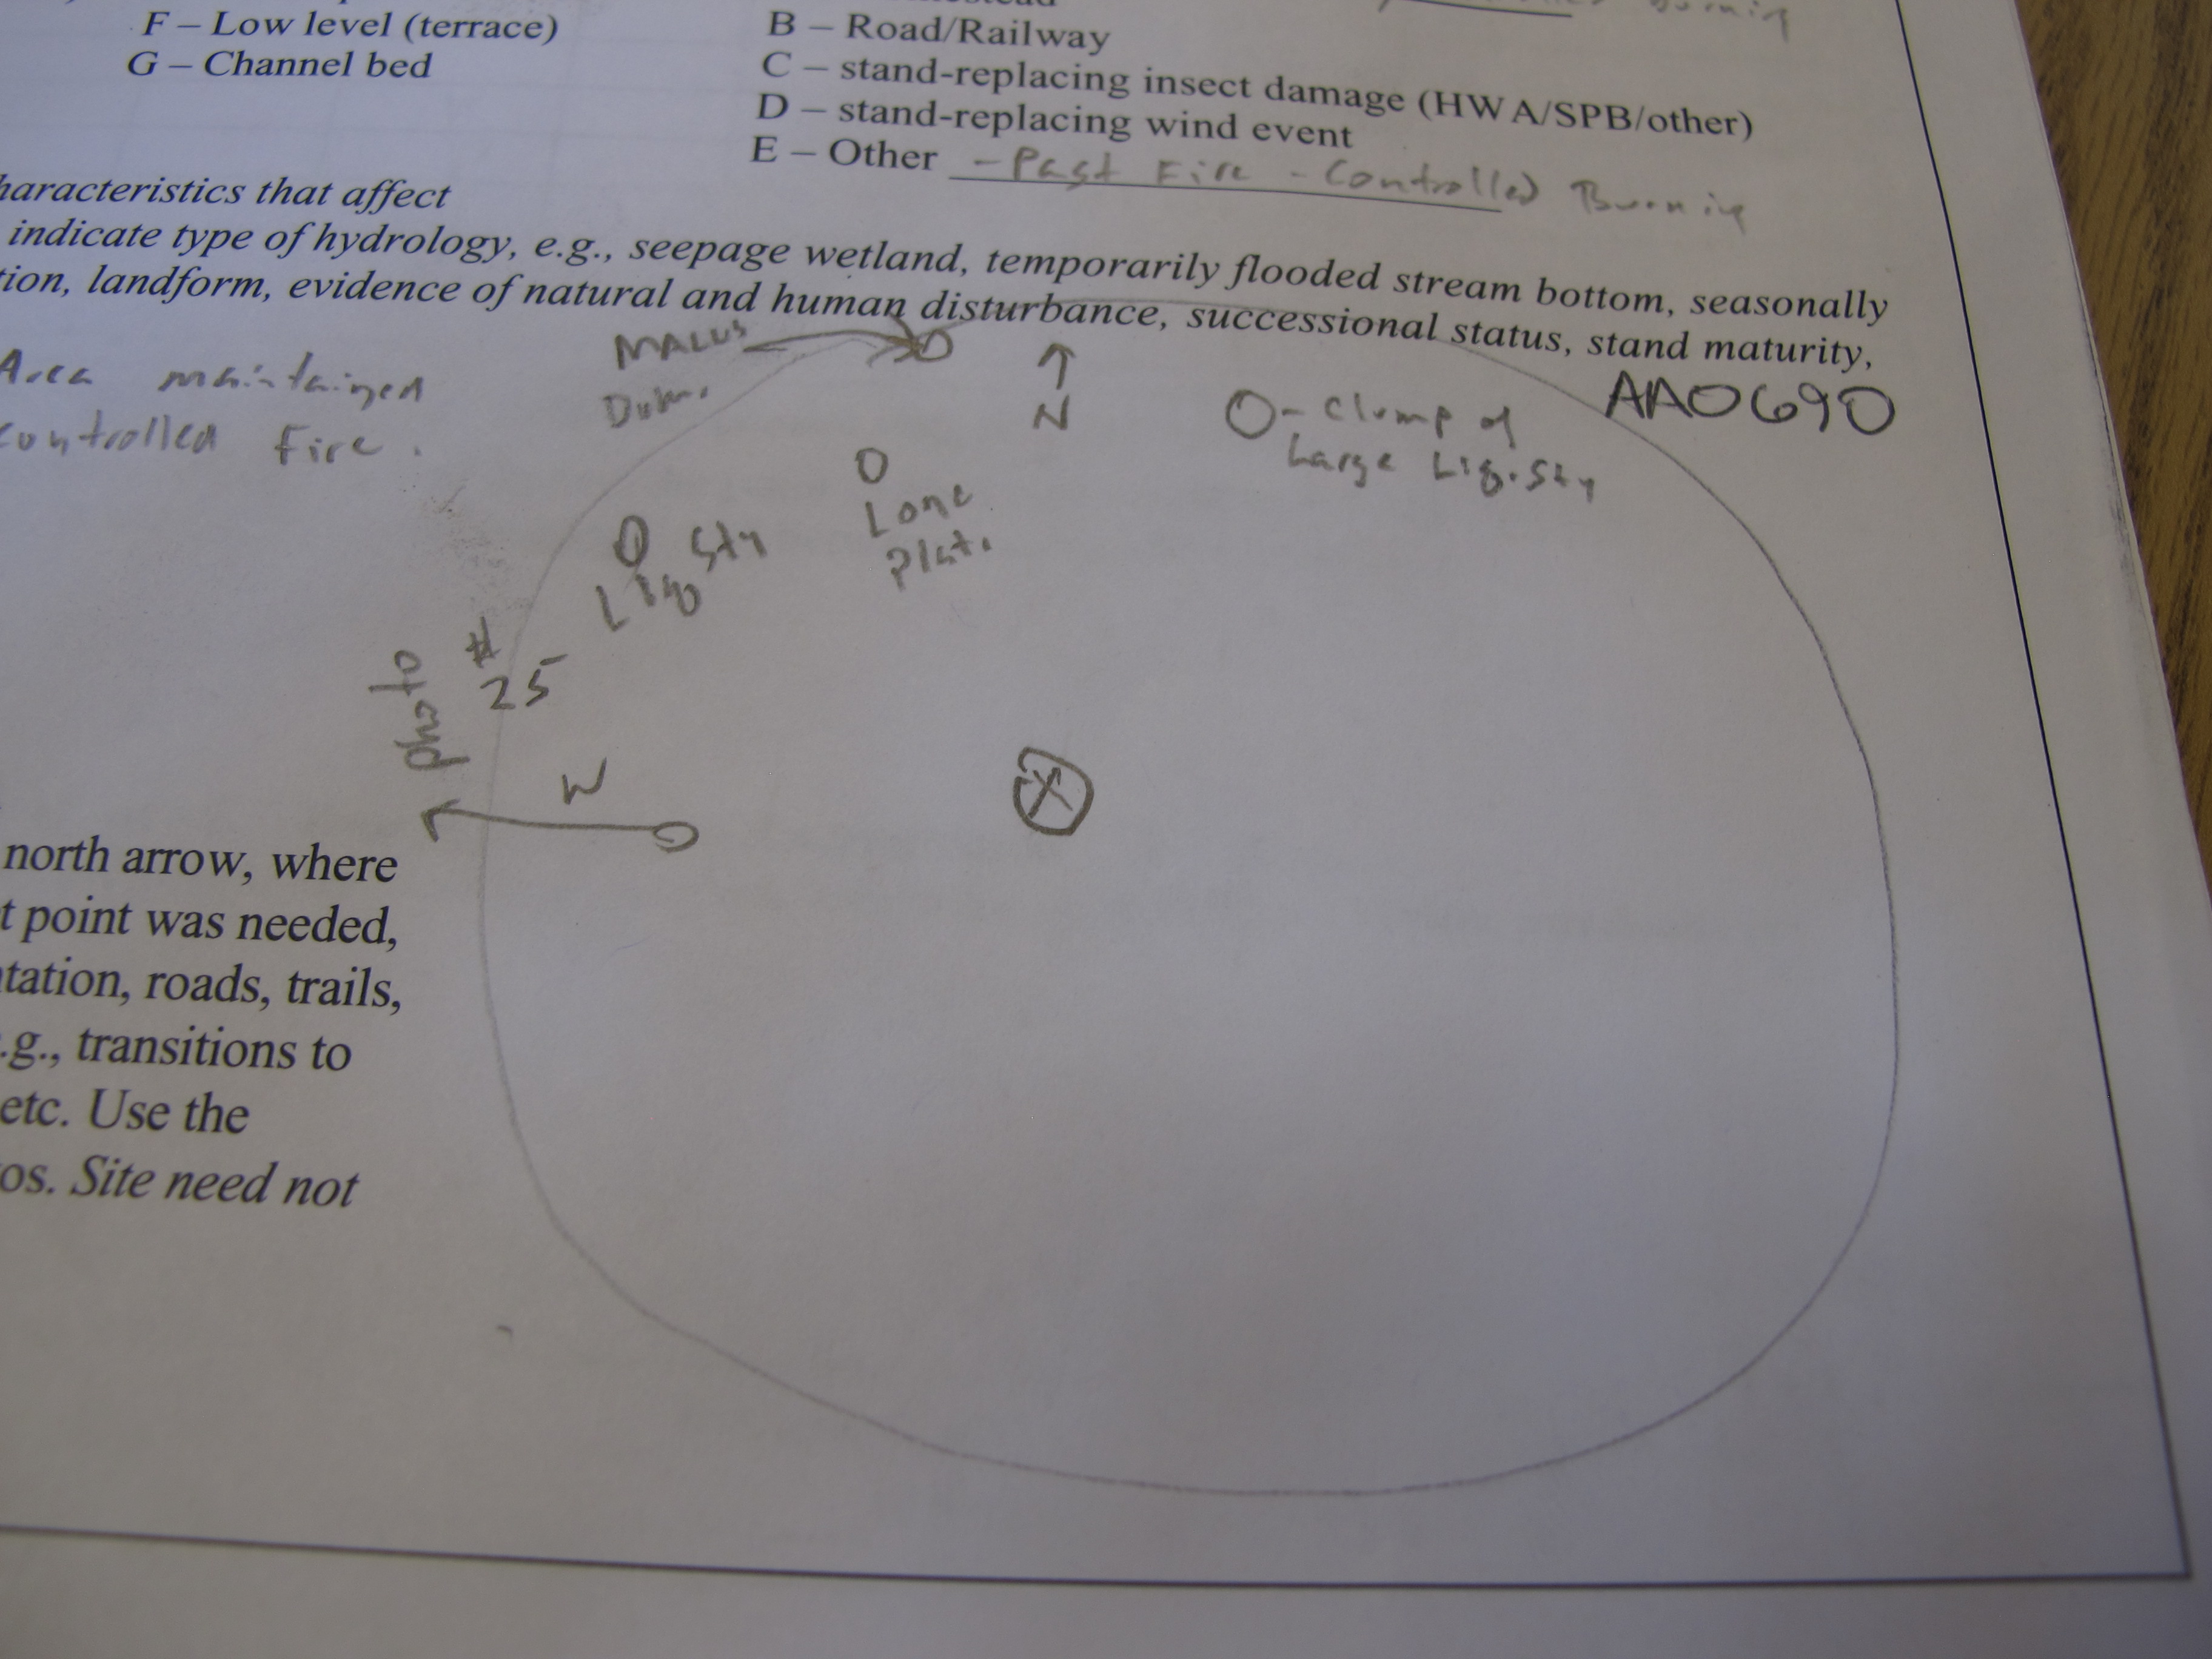 F – Low level (terrace)
G – Channel bed
B – Road/Railway
C – stand-replacing insect damage (HWA/SPB/other)
D – stand-replacing wind event
E – Other - Past Fire - Controlled Burning
haracteristics that affect
indicate type of hydrology, e.g., seepage wetland, temporarily flooded stream bottom, seasonally
tion, landform, evidence of natural and human disturbance, successional status, stand maturity,
Area maintained
controlled Fire.
MALUS
↑
N
O - Clump of
Large Liq. Sty
AAO690
Lone
Plat.
Liq Sty
photo
#
25
W
X
north arrow, where
t point was needed,
tation, roads, trails,
.g., transitions to
etc. Use the
os. Site need not